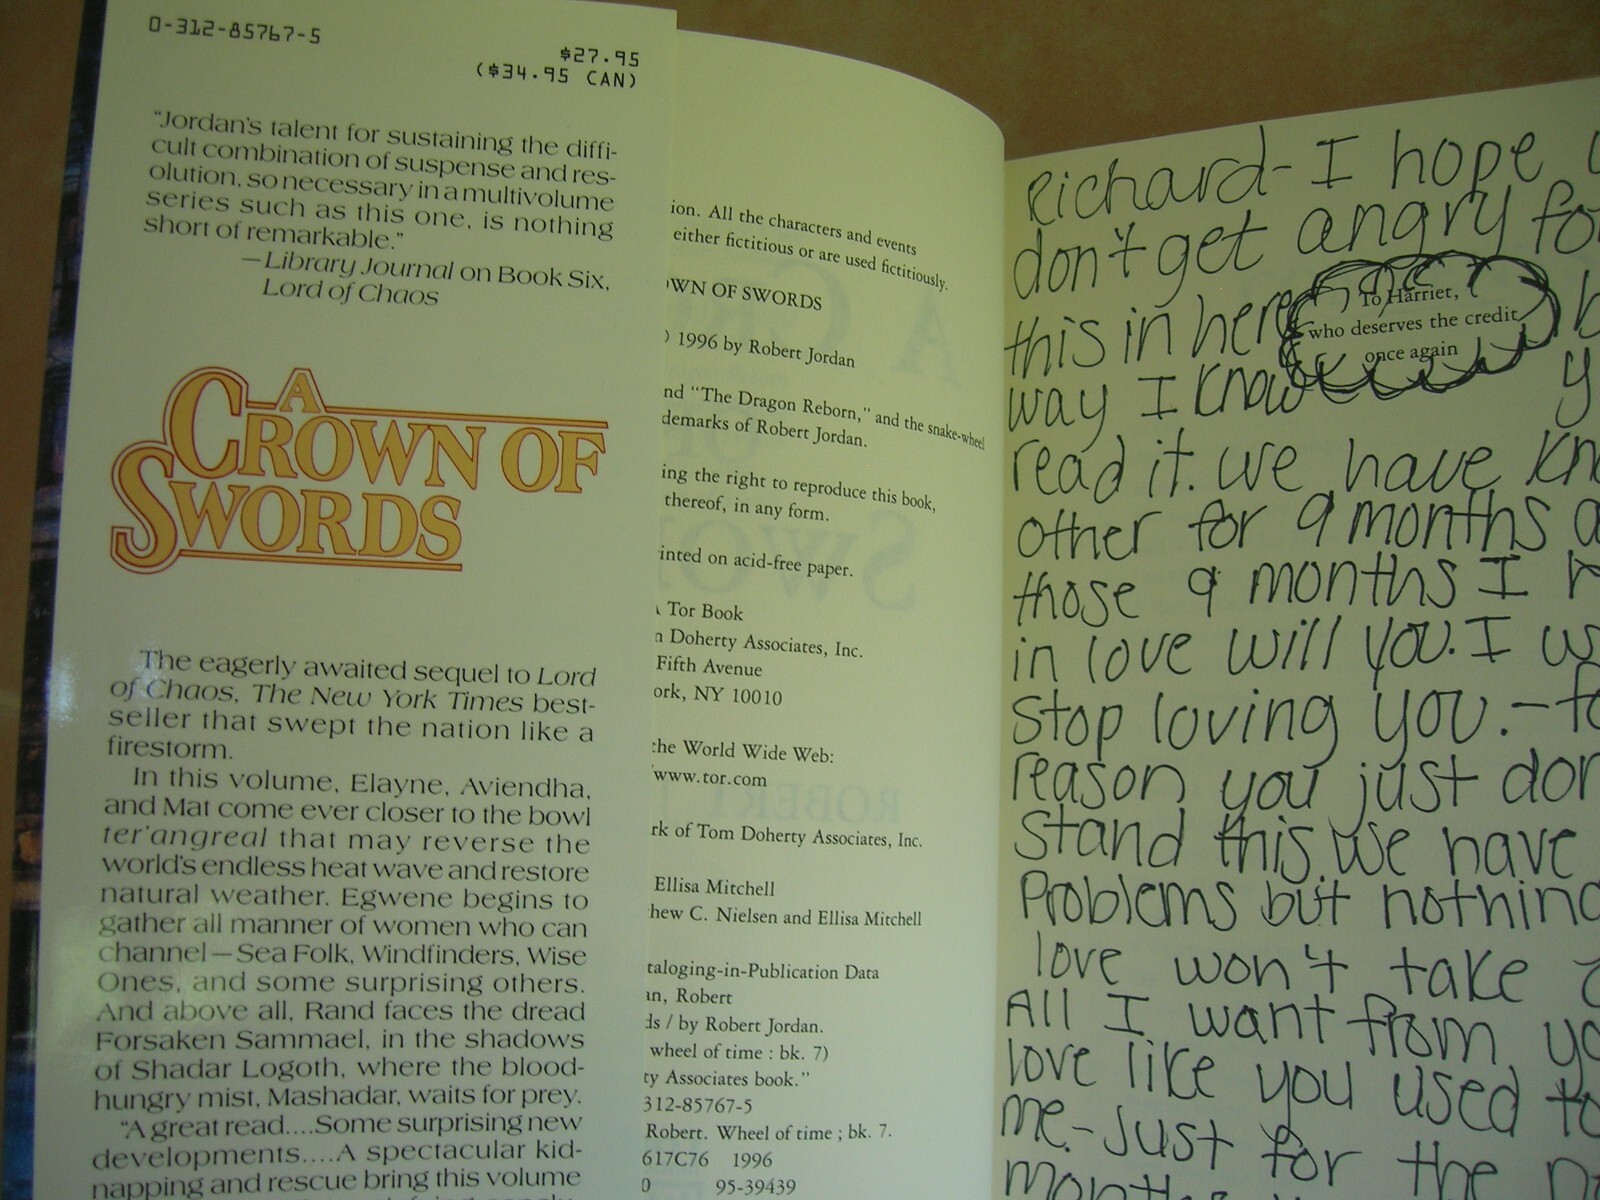 0-312-85767-5
$27.95
($34.95 CAN)
"Jordan's talent for sustaining the diffi-
cult combination of suspense and res-
olution, so necessary in a multivolume
series such as this one, is nothing
short of remarkable."
—Library Journal on Book Six,
Lord of Chaos
A
CROWN OF
SWORDS
The eagerly awaited sequel to Lord
of Chaos, The New York Times best-
seller that swept the nation like a
firestorm.
In this volume, Elayne, Aviendha,
and Mat come ever closer to the bowl
ter'angreal that may reverse the
world's endless heat wave and restore
natural weather. Egwene begins to
gather all manner of women who can
channel—Sea Folk, Windfinders, Wise
Ones, and some surprising others.
And above all, Rand faces the dread
Forsaken Sammael, in the shadows
of Shadar Logoth, where the blood-
hungry mist, Mashadar, waits for prey.
"A great read....Some surprising new
developments....A spectacular kid-
napping and rescue bring this volume
ion. All the characters and events
either fictitious or are used fictitiously.
OWN OF SWORDS
1996 by Robert Jordan
nd "The Dragon Reborn," and the snake-wheel
demarks of Robert Jordan.
ing the right to reproduce this book,
thereof, in any form.
rinted on acid-free paper.
A Tor Book
n Doherty Associates, Inc.
Fifth Avenue
ork, NY 10010
the World Wide Web:
/www.tor.com
rk of Tom Doherty Associates, Inc.
Ellisa Mitchell
hew C. Nielsen and Ellisa Mitchell
taloging-in-Publication Data
an, Robert
ds / by Robert Jordan.
wheel of time : bk. 7)
ty Associates book."
312-85767-5
Robert. Wheel of time ; bk. 7.
617C76 1996
0 95-39439
Richard- I hope
don't get angry fo
this in here
way I know y
read it. we have kn
other for 9 months a
those 9 months I
in love will you. I
stop loving you. -
reason you just don
stand this. we have
Problems but nothing
love won't take
All I want from yo
love like you used to
me.- Just for the
months
To Harriet,
who deserves the credit
once again